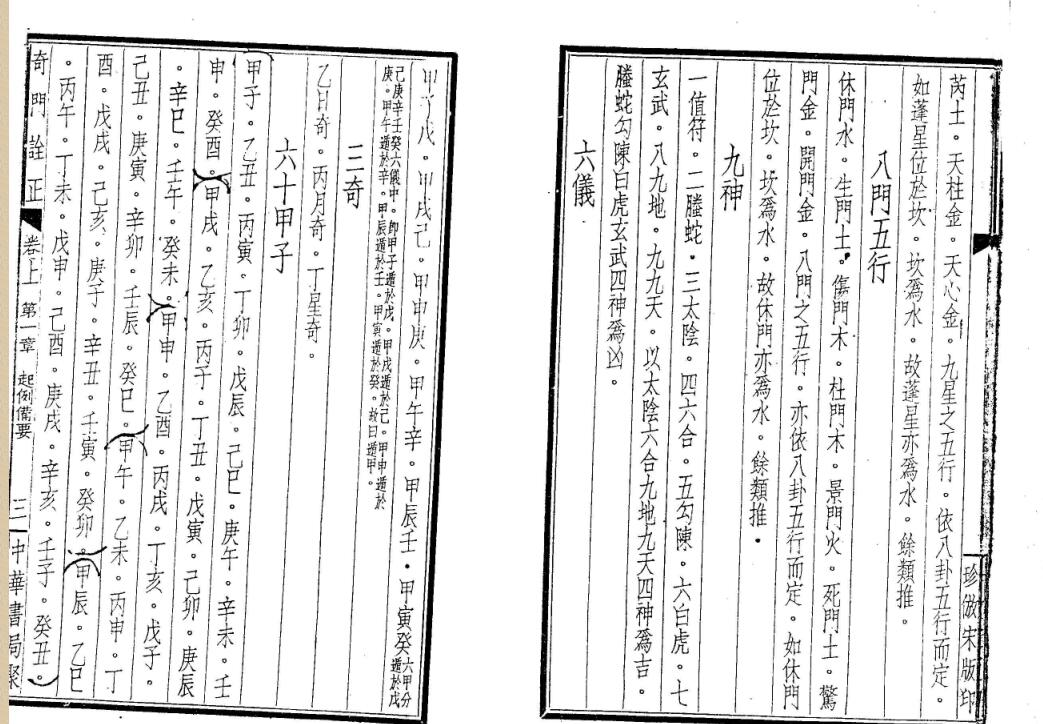 芮土。天柱金。天心金。九星之五行。依八卦五行而定。
如蓬星位於坎。坎爲水。故蓬星亦爲水。餘類推。
八門五行
休門水。生門土。傷門木。杜門木。景門火。死門土。驚
門金。開門金。八門之五行。亦依八卦五行而定。如休門
位於坎。坎爲水。故休門亦爲水。餘類推。
九神
一值符。二螣蛇。三太陰。四六合。五勾陳。六白虎。七
玄武。八九地。九九天。以太陰六合九地九天四神爲吉。
螣蛇勾陳白虎玄武四神爲凶。
六儀
珍倣宋版印
甲子戊。甲戌己。甲申庚。甲午辛。甲辰壬。甲寅癸。六甲分遁於戊
己庚辛壬癸六儀中。卽甲子遁於戊。甲戌遁於己。甲申遁於
庚。甲午遁於辛。甲辰遁於壬。甲寅遁於癸。故曰遁甲。
三奇
乙日奇。丙月奇。丁星奇。
六十甲子
甲子。乙丑。丙寅。丁卯。戊辰。己巳。庚午。辛未。壬
申。癸酉。甲戌。乙亥。丙子。丁丑。戊寅。己卯。庚辰
。辛巳。壬午。癸未。甲申。乙酉。丙戌。丁亥。戊子。
己丑。庚寅。辛卯。壬辰。癸巳。甲午。乙未。丙申。丁
酉。戊戌。己亥。庚子。辛丑。壬寅。癸卯。甲辰。乙巳
。丙午。丁未。戊申。己酉。庚戌。辛亥。壬子。癸丑。
奇門詮正 卷上 第一章 起例備要 三 中華書局聚